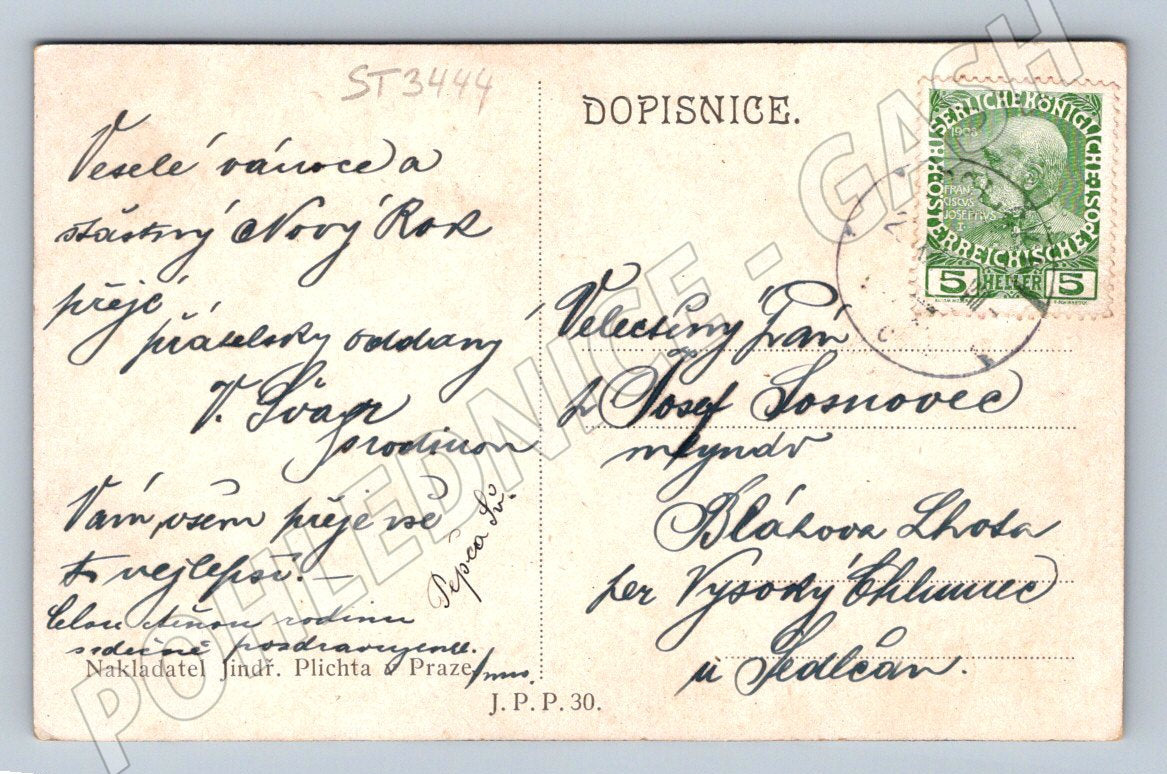 ST3444
Veselé vánoce a
šťastný Nový Rok
přejé
přátelsky oddaný
V. Švagr
s rodinou
Vám všem přeje vše
to nejlepší. —
Pepca Šv.
Celou rodinu
srdečně pozdravujeme.
Nakladatel Jindř. Plichta v Praze.
J. P. P. 30.
DOPISNICE.
KAISERLICHE KÖNIGLICHE
ÖSTERREICHISCHE POST
1908
FRAN
CISCVS
JOSEPHVS
I
5 HELLER 5
Velectěný Pán
p Josef Sosnovec
mlynář
Bláhova Lhota
per Vysoký Chlumec
u Sedlčan.
POHLEDNICE - GASH